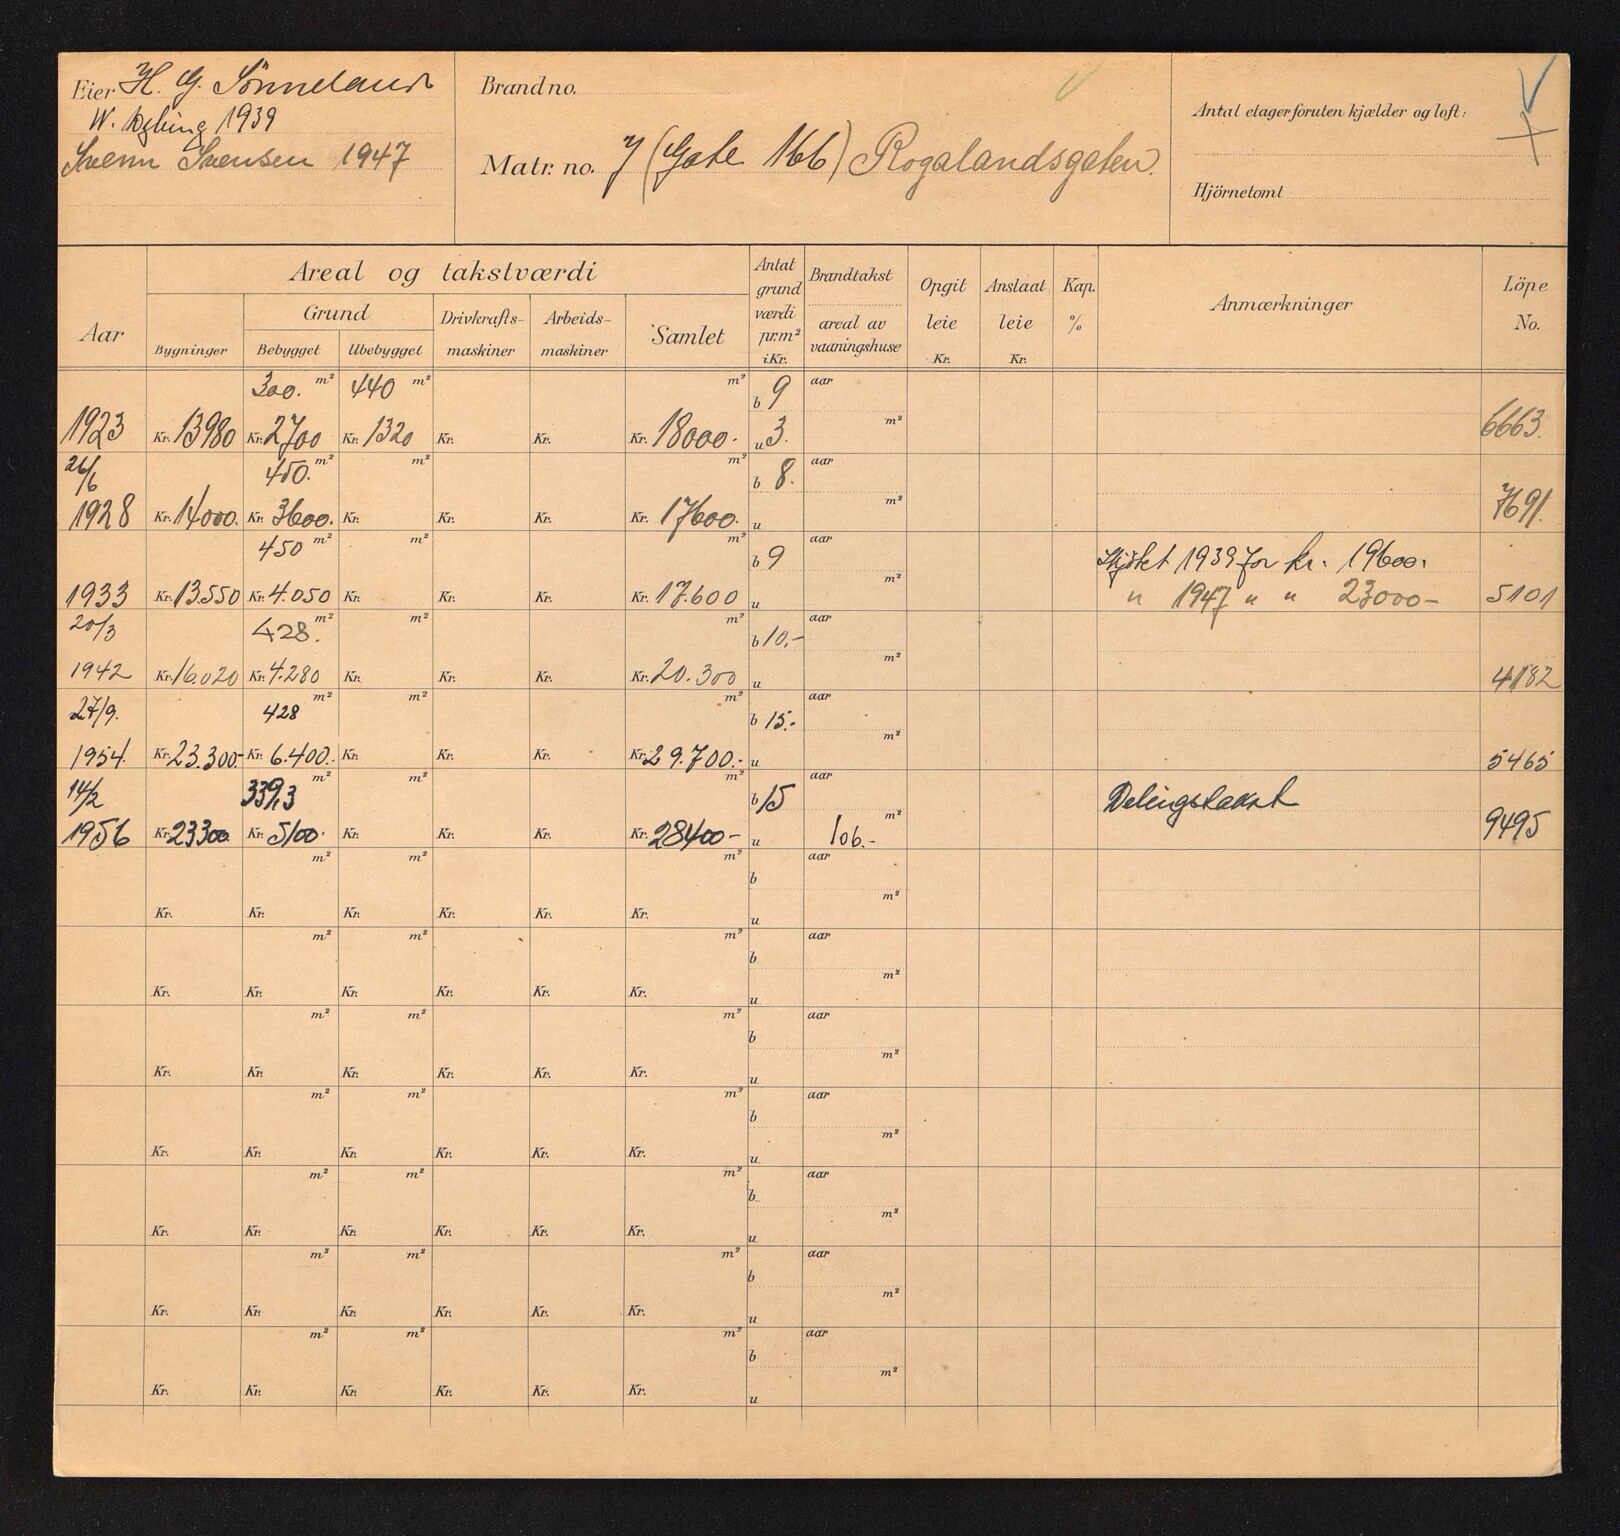 Eier H. G. Sønneland
W. 1939
Svenn Svensen 1947
Brand no.
Matr. no. 7 (Gate 166) Rogalandsgaten.
Antal etager foruten kjælder og loft:
Hjörnetomt
Aar
Areal og takstværdi
Bygninger
Grund
Bebygget Ubebygget
Drivkrafts-
maskiner
Arbeids-
maskiner
Samlet
Antat
grund
værdi
pr.m²
i Kr.
Brandtakst
areal av
vaaningshuse
Opgit
leie
Kr.
Anslaat
leie
Kr.
Kap.
%
Anmærkninger
Löpe
No.
300. m² 440 m² m² b 9 aar
1923 Kr. 13980 Kr. 2700 Kr. 1320 Kr. Kr. Kr. 18000.- u 3. m² 6663.
26/6 450. m² m² m² b 8. aar
1928 Kr. 14000. Kr. 3600. Kr. Kr. Kr. Kr. 17600. u m² 7691.
450 m² m² m² b 9 aar Skjötet 1939 for kr. 19600.
1933 Kr. 13.550 Kr. 4.050 Kr. Kr. Kr. Kr. 17.600 u m² " 1947 " " 23000- 5101
20/3 428. m² m² m² b 10.- aar
1942 Kr. 16.020 Kr. 4.280 Kr. Kr. Kr. Kr. 20.300 u m² 4182
27/9. 428 m² m² m² b 15.- aar
1954. Kr. 23.300.- Kr. 6.400.- Kr. Kr. Kr. Kr. 29.700.- u m² 5465
14/2 339,3 m² m² m² b 15 aar Delingstakst
1956 Kr. 23300 Kr. 5100. Kr. Kr. Kr. Kr. 28400- u 106.- m² 9495
m² m² m² b aar
Kr. Kr. Kr. Kr. Kr. Kr. u m²
m² m² m² b aar
Kr. Kr. Kr. Kr. Kr. Kr. u m²
m² m² m² b aar
Kr. Kr. Kr. Kr. Kr. Kr. u m²
m² m² m² b aar
Kr. Kr. Kr. Kr. Kr. Kr. u m²
m² m² m² b aar
Kr. Kr. Kr. Kr. Kr. Kr. u m²
m² m² m² b aar
Kr. Kr. Kr. Kr. Kr. Kr. u m²
m² m² m² b aar
Kr. Kr. Kr. Kr. Kr. Kr. u m²